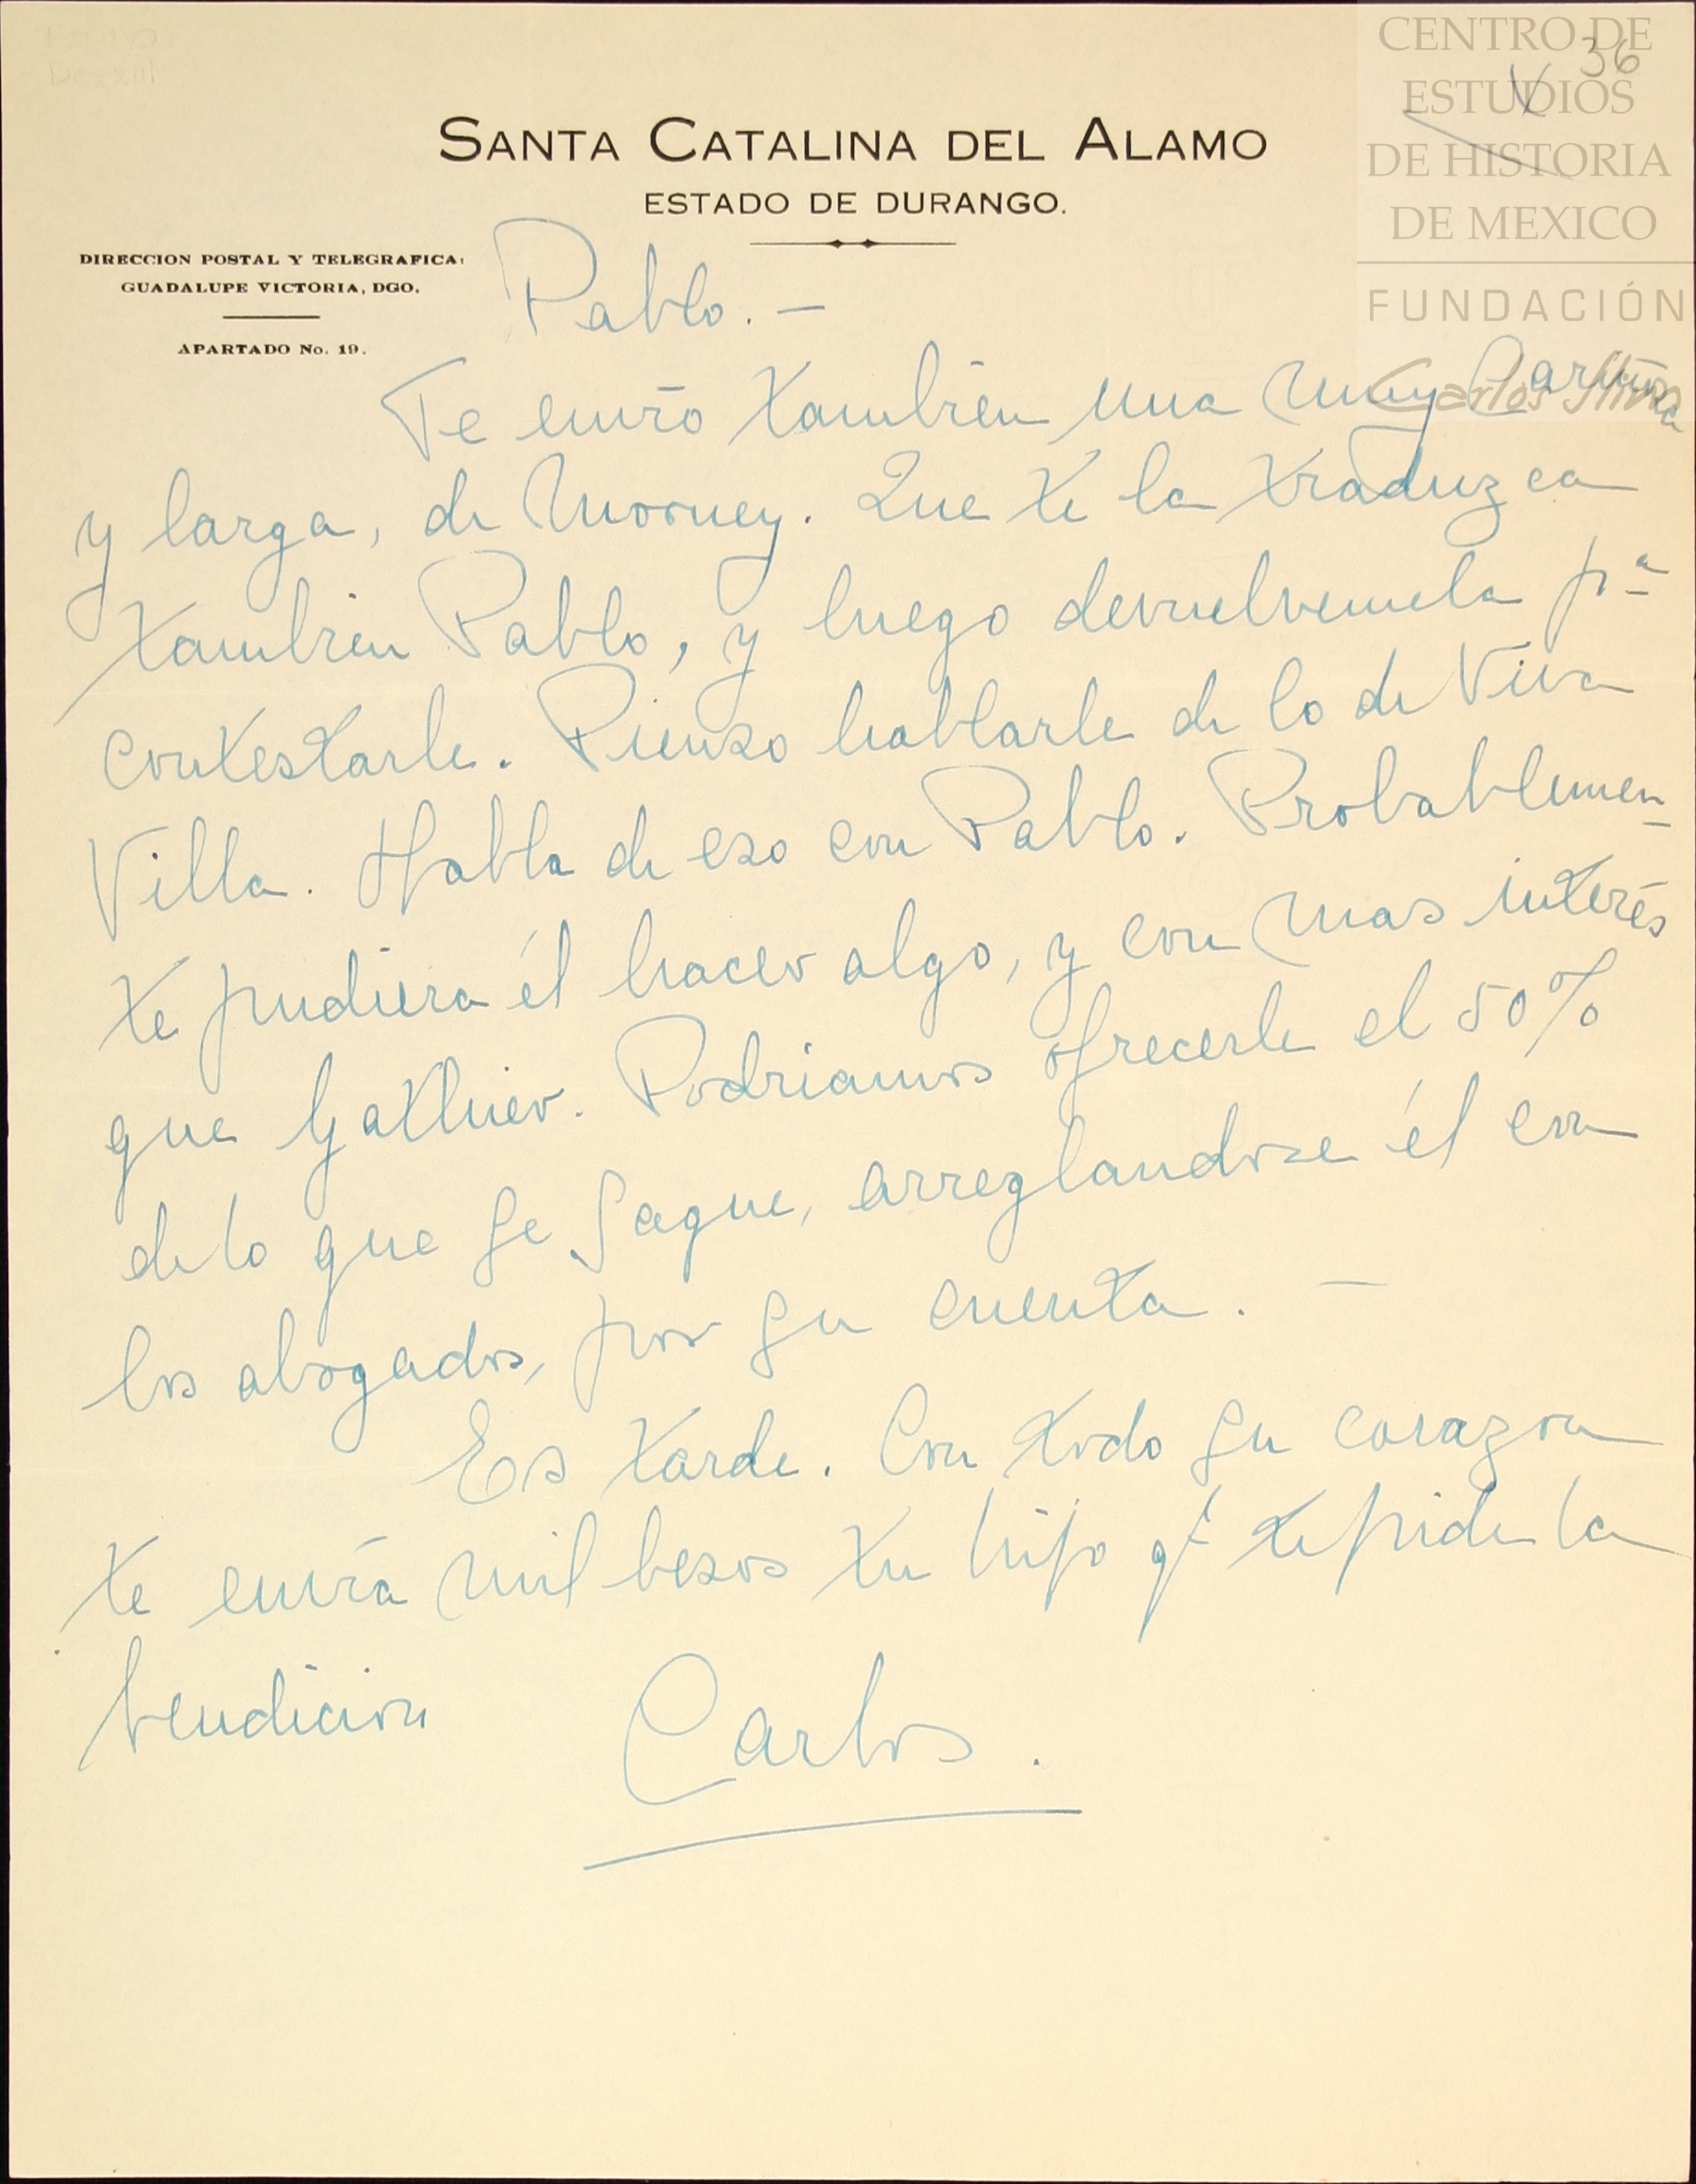 36
V
SANTA CATALINA DEL ALAMO
ESTADO DE DURANGO.
DIRECCION POSTAL Y TELEGRAFICA:
GUADALUPE VICTORIA, DGO.
APARTADO No. 19.
CENTRO DE
ESTUDIOS
DE HISTORIA
DE MEXICO
FUNDACIÓN
Carlos Slim
Pablo. —
Te envío también una muy cariñosa
y larga, de Morney. Que te la traduzca
también Pablo, y luego devuelvemela pª
contestarle. Pienso hablarle de lo de Viva
Villa. Habla de eso con Pablo. Probablemen-
te pudiera él hacer algo, y con mas interés
que Gathier. Podriamos ofrecerle el 50%
de lo que se saque, arreglandose él con
los abogados, por su cuenta. —
Es tarde. Con todo su corazon
te envía mil besos tu hijo q' te pide la
bendicion
Carlos.